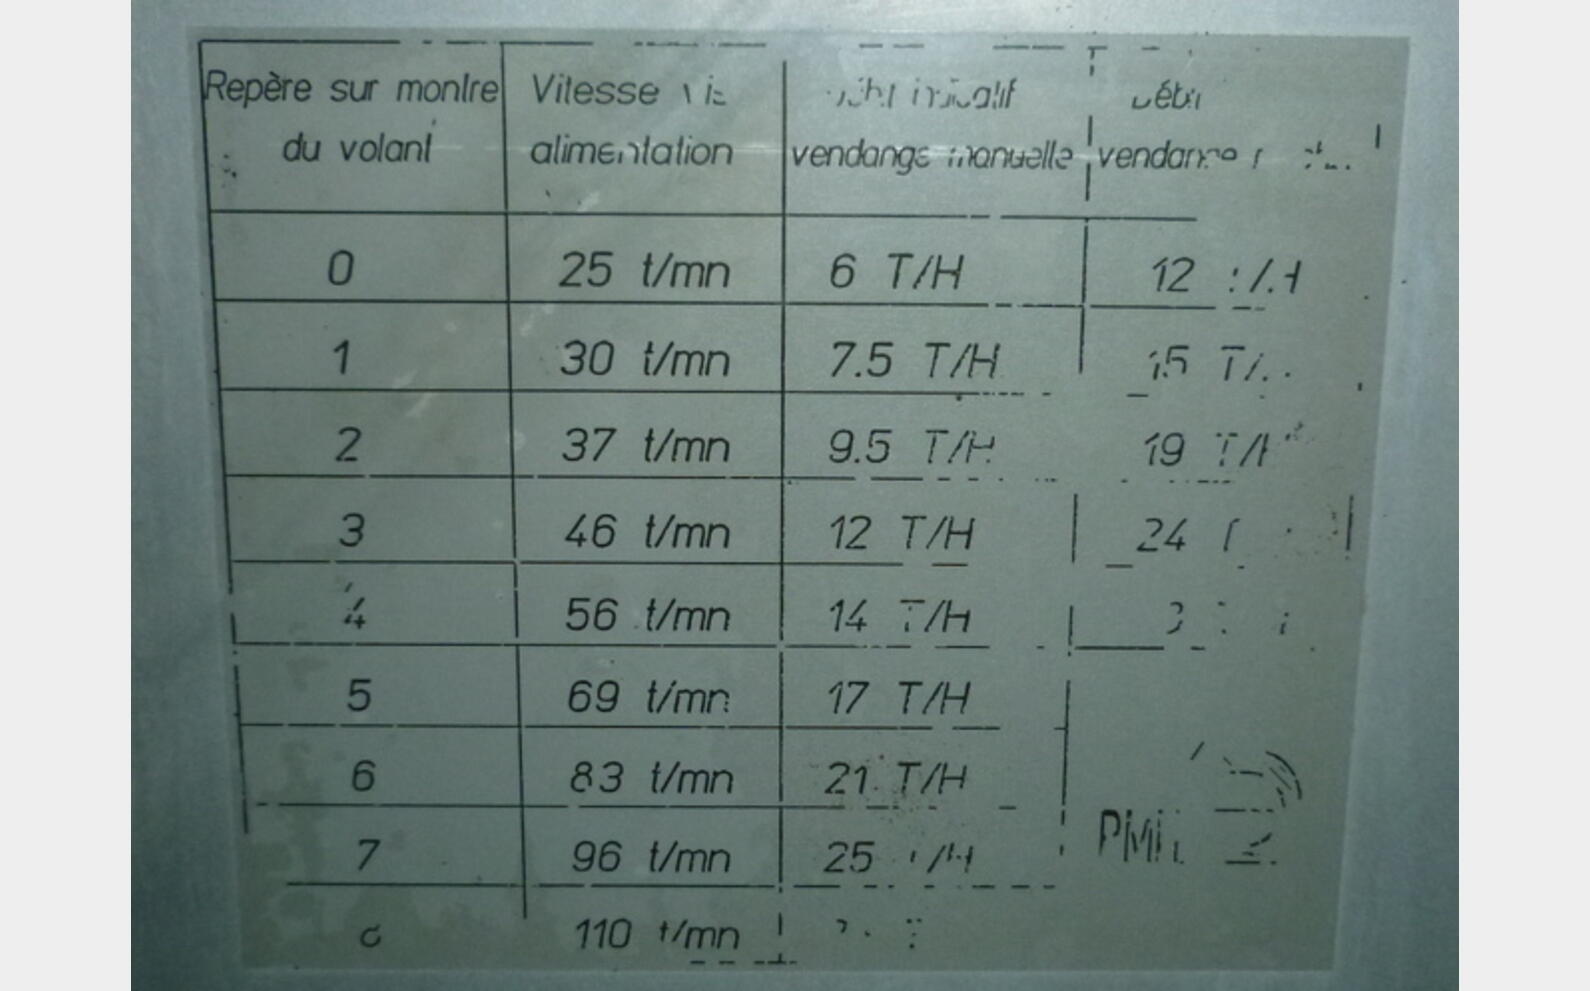 Repère sur montre du volant Vitesse vis alimentation vendange manuelle vendange
0 25 t/mn 6 T/H 12
1 30 t/mn 7.5 T/H 15
2 37 t/mn 9.5 T/H 19 T/H
3 46 t/mn 12 T/H 24
4 56 t/mn 14 T/H
5 69 t/mn 17 T/H
6 83 t/mn 21 T/H
7 96 t/mn 25 T/H
110 t/mn